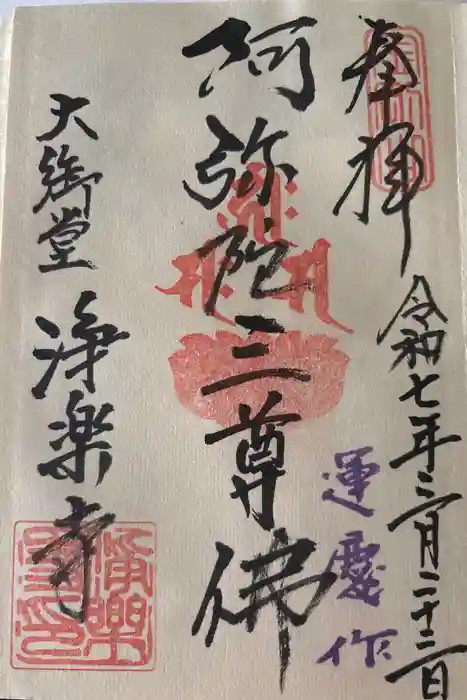 奉拝
令和七年三月二十二日
運慶作
阿弥陀三尊佛
大御堂
浄楽寺